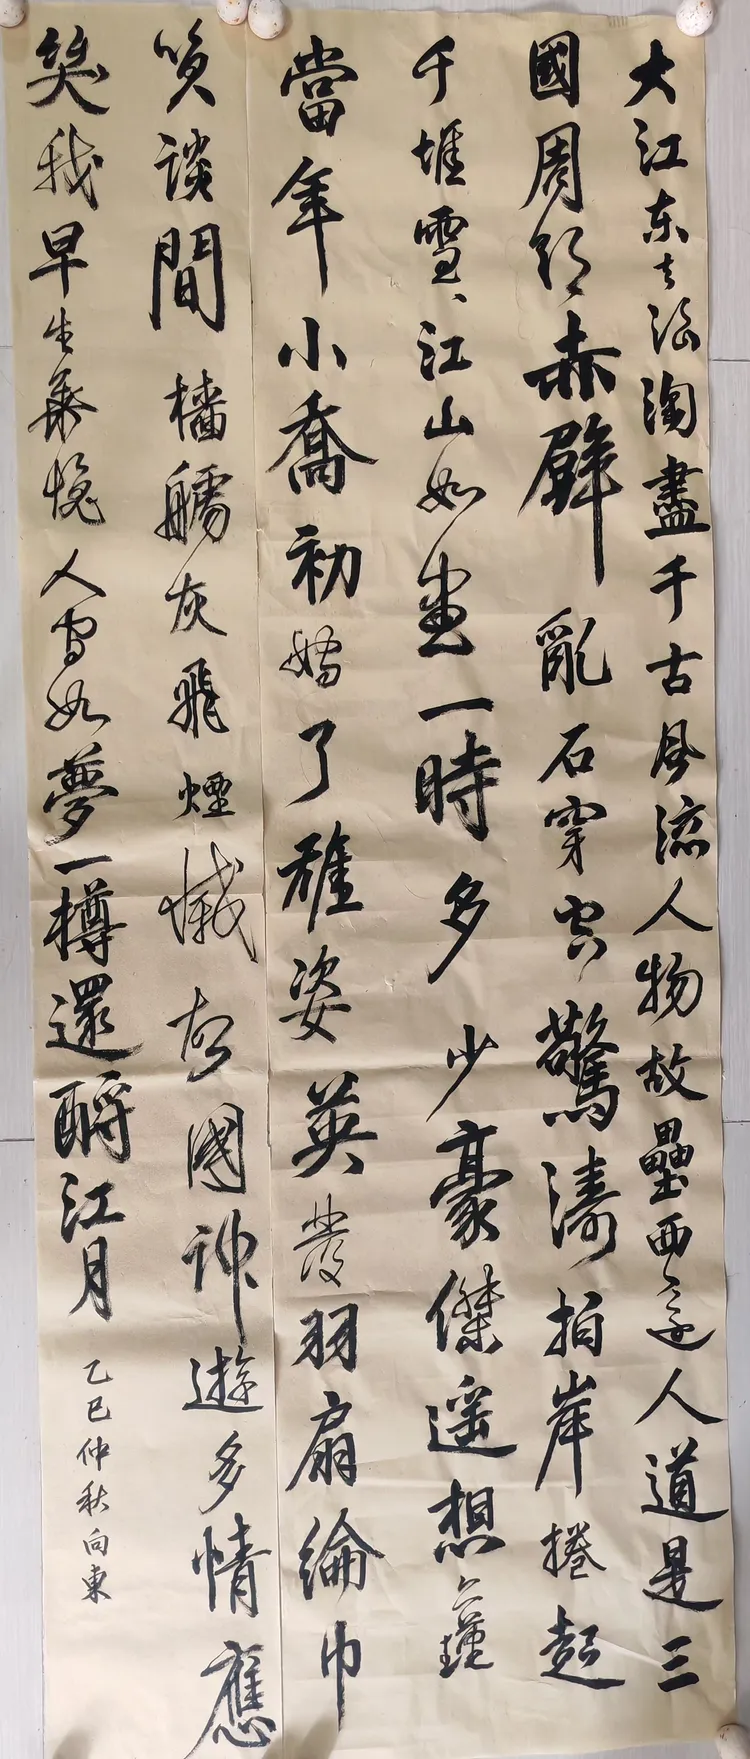 大江东去浪淘盡千古風流人物故壘西邊人道是三
國周郎赤壁亂石穿空驚濤拍岸捲起
千堆雪、江山如畫一時多少豪傑遥想公瑾
當年小喬初嫁了雄姿英發羽扇綸巾
笑談間檣艣灰飛煙滅故國神遊多情應
笑我早生華髮人間如夢一樽還酹江月
乙巳仲秋向東